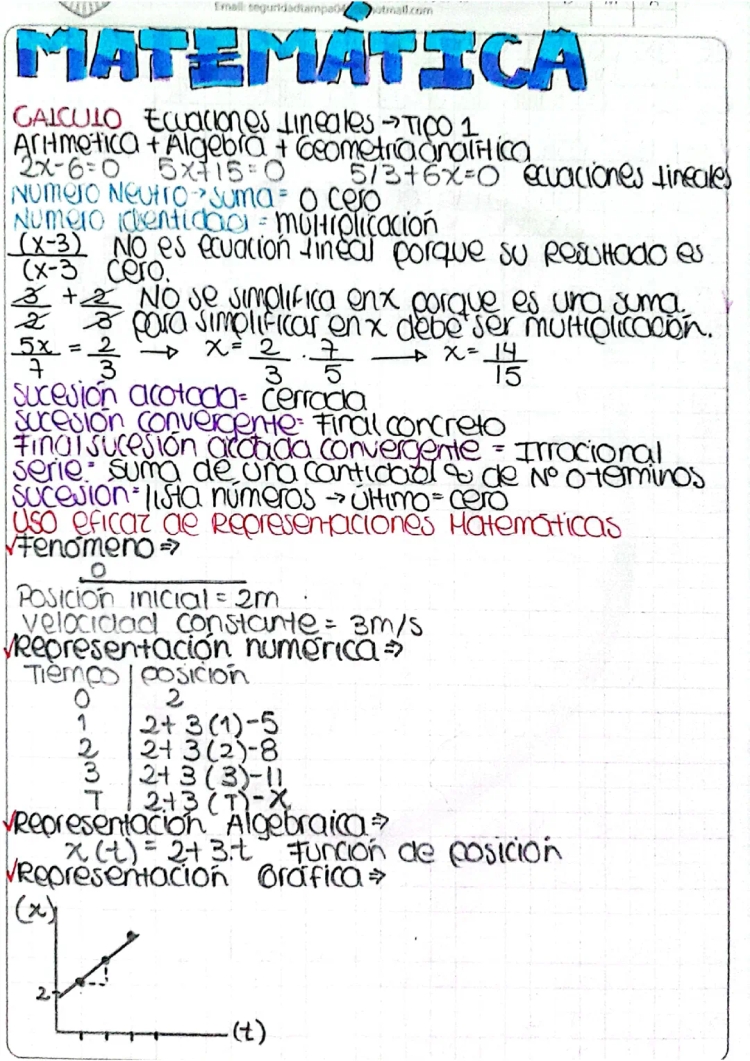 Email: seguridadtampa0
MATEMÁTICA
CALCULO Ecuaciones lineales → Tipo 1
Aritmética + Algebra + Geometria analitica
2x-6=0 5x+15=0 5/3+6x=0 ecuaciones lineales
Numero Neutro → suma = 0 cero
Numero identidad = multiplicación
(x-3) No es ecuación lineal porque su resultado es
(x-3 cero.
3/2 + 2/3 No se simplifica en x porque es una suma.
para simplificar en x debe ser multiplicación.
5x/7 = 2/3 → x = 2/3 · 7/5 → x = 14/15
sucesión acotada = cerrada
sucesión convergente = final concreto
Final sucesión acotada convergente = Irracional
serie = suma de una cantidad de Nº o terminos
sucesion = lista números → último = cero
Uso eficaz de Representaciones Matemáticas
√Fenómeno ⇒
0
Posición inicial = 2m
velocidad constante = 3m/s
√Representación numérica ⇒
Tiempo | posición
0 2
1 2+3(1)-5
2 2+3(2)-8
3 2+3(3)-11
T 2+3(T)-x
√Representación Algebraica ⇒
x(t) = 2+3.t Función de posición
√Representación Grafica ⇒
(x)
2
(t)